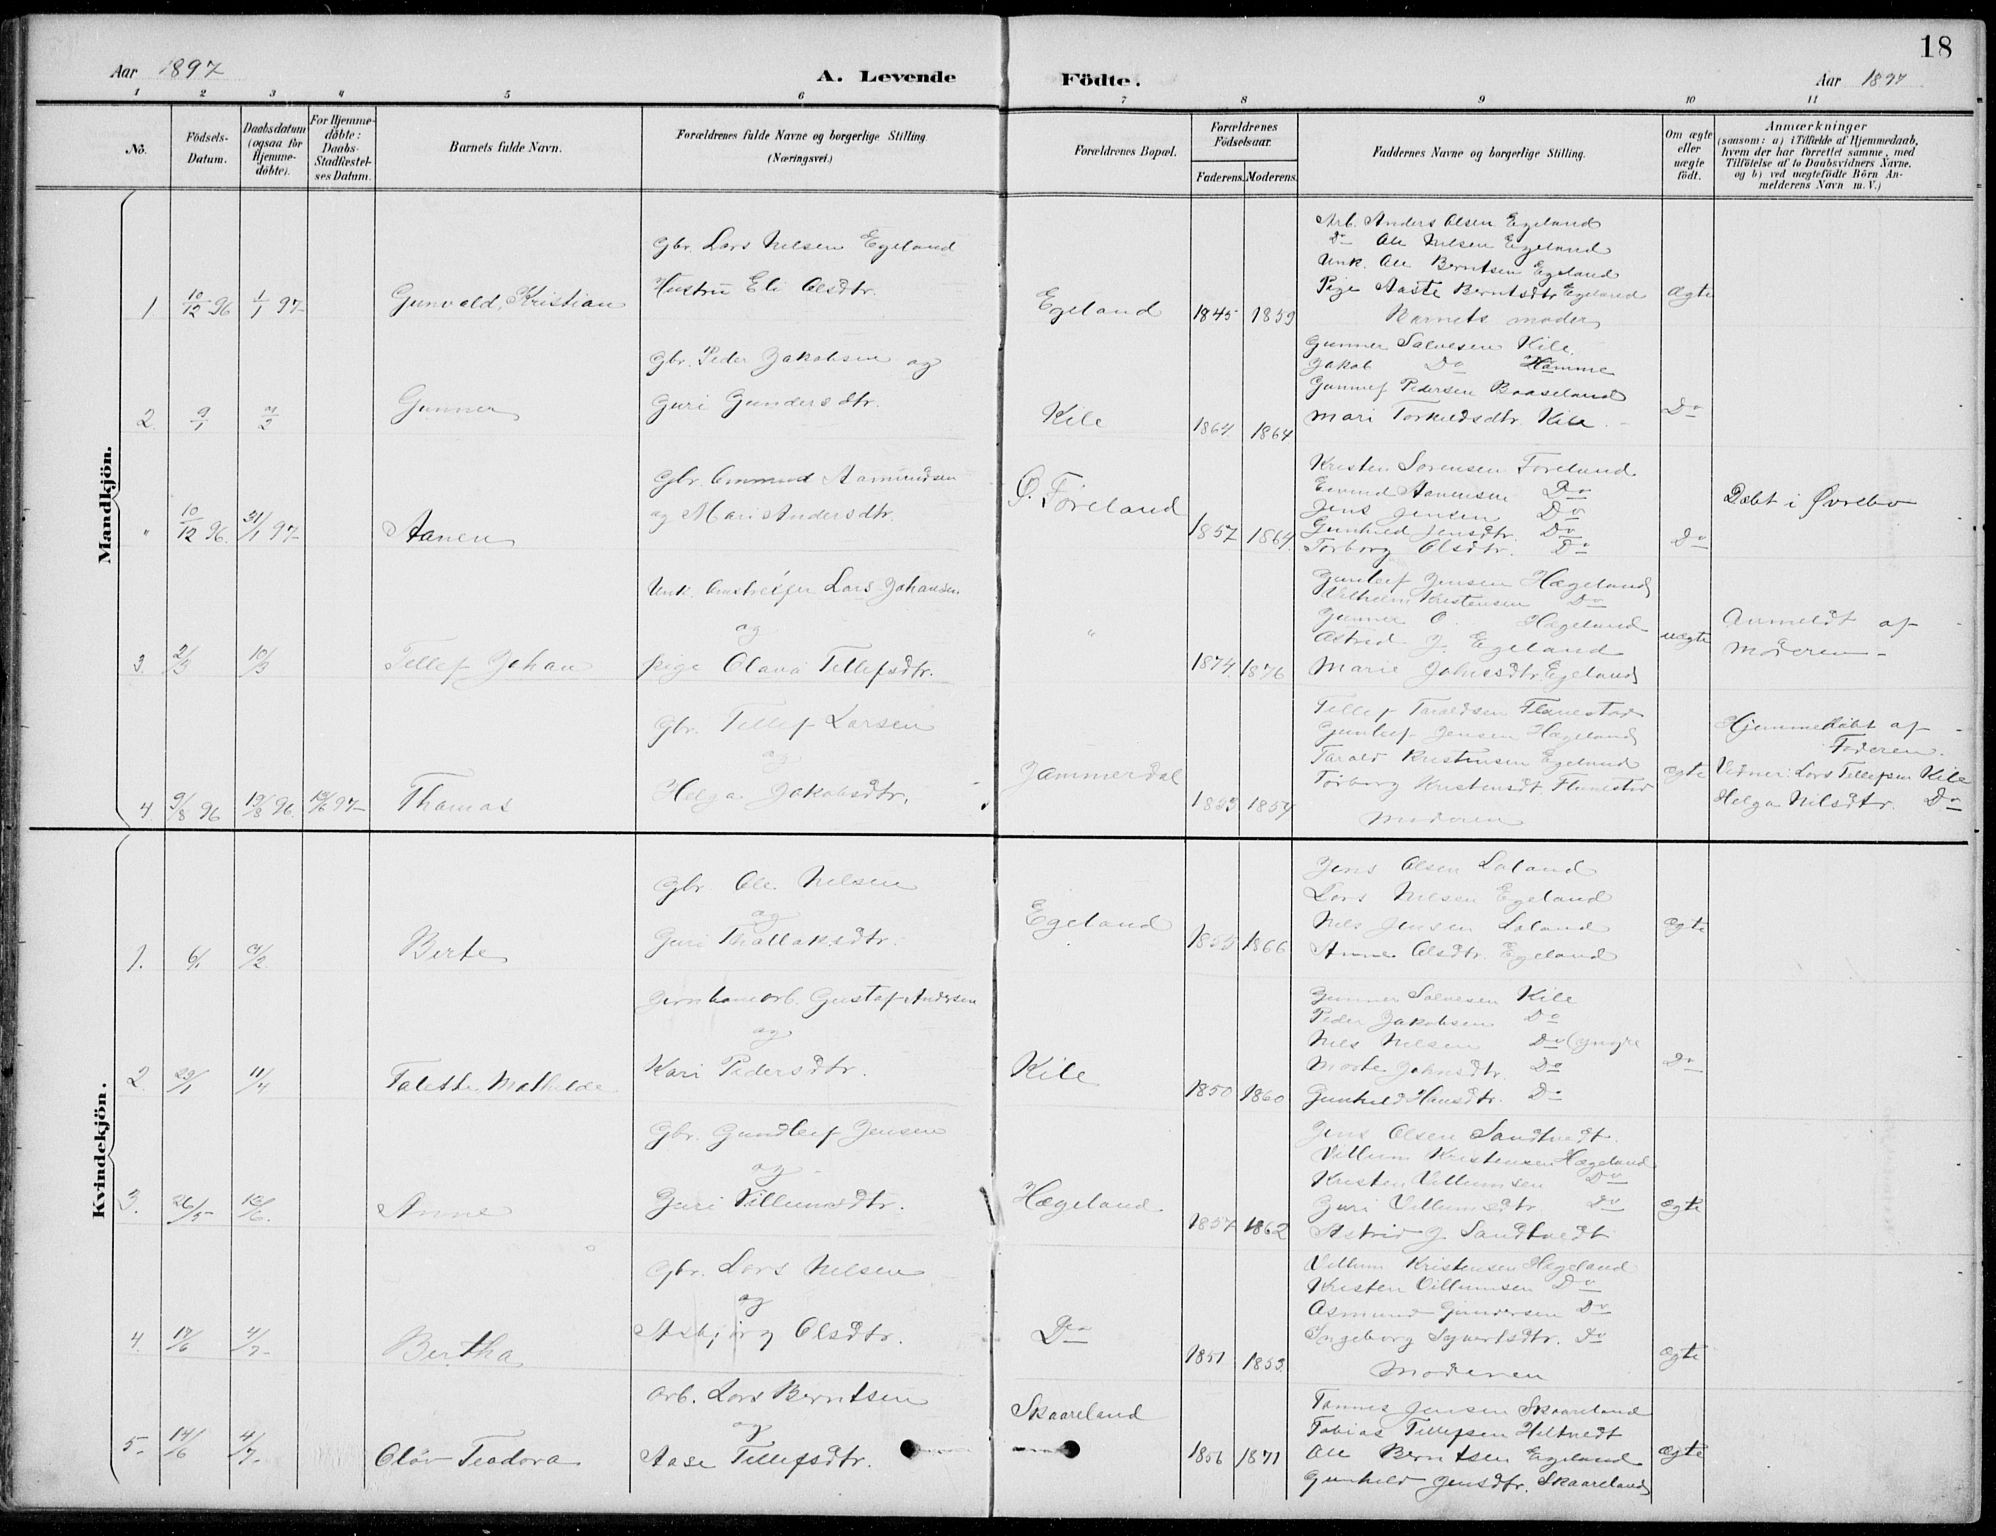 18
Aar 1897 A. Levende Födte. Aar 1897
1 2 3 4 5 6 7 8 9 10 11
No.
Födsels-Datum.
Daabsdatum (ogsaa for Hjemmedöbte).
For Hjemmedöbte: Daabs-Stadfæstelses Datum.
Barnets fulde Navn.
Forældrenes fulde Navne og borgerlige Stilling.
(Næringsvei.)
Forældrenes Bopæl.
Forældrenes Födselsaar.
Faderens. Moderens.
Faddernes Navne og borgerlige Stilling.
Om ægte eller uægte födt.
Anmærkninger
(saasom: a) i Tilfælde af Hjemmedaab,
hvem der har forrettet samme, med
Tilföielse af to Daabsvidners Navne,
og b) ved uægtefödte Börn An-
melderens Navn m. V.)
Mandkjön.
1 10/12 96 1/1 97 Gunvald Kristian
Gbr. Lars Nilsen Egeland
Hustru Eli Olsdtr.
Egeland 1845 1859
Arb. Anders Olsen Egeland
Do Ole Nilsen Egeland
Unk. Ole Berntsen Egeland
Pige Aaste Berntsdtr Egeland
Barnets moder
Ægte
2. 9/1 7/2 Gunner
Gbr. Peder Jakobsen og
Guri Gundersdtr.
Kile 1864 1864
Gunner Salvesen Kile.
Jakob Do Homme
Gunner Pedersen Baaseland
Mari Torkildsdtr. Kile.
Do
" 10/12 96. 31/1 97 Aanen
Gbr. Ommund Aamundsen
og Mari Andersdtr.
Ø. Føreland 1857 1864.
Kristen Sørensen Føreland
Eivind Aanensen Do
Jens Jensen Do
Gunhild Jensdtr. Do
Torborg Olsdtr. Do
Do
Døbt i Øvrebø
3. 2/3 10/3 Tellef Johan
Unk. Lars Johansen
og
pige Olava Tellefsdtr.
" 1874. 1876
Gunleif Jensen Hægeland
Vilhelm Kristensen Do
Gunner O. Hægeland
Astrid J. Egeland
Marie Johnsdtr. Egeland
uægte
Anmeldt af
Moderen
4 9/8 96 19/8 96. 97 Thomas
Gbr. Tellef Larsen
og
Helga Jakobsdtr.
Jammerdal 1859
Tellef Taraldsen Flanestad
Gunleif Jensen Hægeland
Tarald Kristensen Egeland
Torborg Kristensdt Flanestad
Moderen
ægte
Hjemmedøbt af
Faderen.
Vidner: Lars Tellefsen Kile
Helga Nilsdtr. Do
Kvindekjön.
1. 6/1 7/2 Berte
Gbr Ole Nilsen
og
Guri Thallaksdtr.
Egeland 1855 1866
Jens Olsen Loland
Lars Nilsen Egeland
Nils Jensen Loland
Anne Olsdtr. Egeland
ægte
2. 29/1 11/4 Talette Mathilde
Jernbanearb. Gustaf Andersen
og
Kari Pedersdtr.
Kile 1850 1860
Gunner Salvesen Kile
Peder Jakobsen Do
Nils Nilsen Do (yngre
Marte Johnsdtr. Do
Gunhild Hansdtr. Do
Do
3. 26/5 /6. Anne
Gbr. Gundleif Jensen
og
Guri Villumsdtr.
Hægeland 1857 1862
Jens Olsen Sandtvedt.
Villum Kristensen Hægeland
Kristen Villumsen Do
Guri Villumsdtr. Do
Astrid J. Sandtvedt
ægte
4. 17/6 4/7 Bertha
Gbr. Lars Nilsen
og
Asbjørg Olsdtr.
Do 1851 1853.
Villum Kristensen Hægeland
Kristen Villumsen Do
Asmund Gundersen Do
Ingeborg Syvertsdtr. Do
Moderen
ægte
5 14/6 4/7 Olóv Teodora
Arb. Lars Berntsen
og
Aase Tellefsdtr.
Skaareland 1856 1871
Tønnes Jensen Skaareland
Tobias Tellefsen Hiltvedt
Ole Berntsen Egeland
Gunhild Jensdtr. Skaareland
ægte